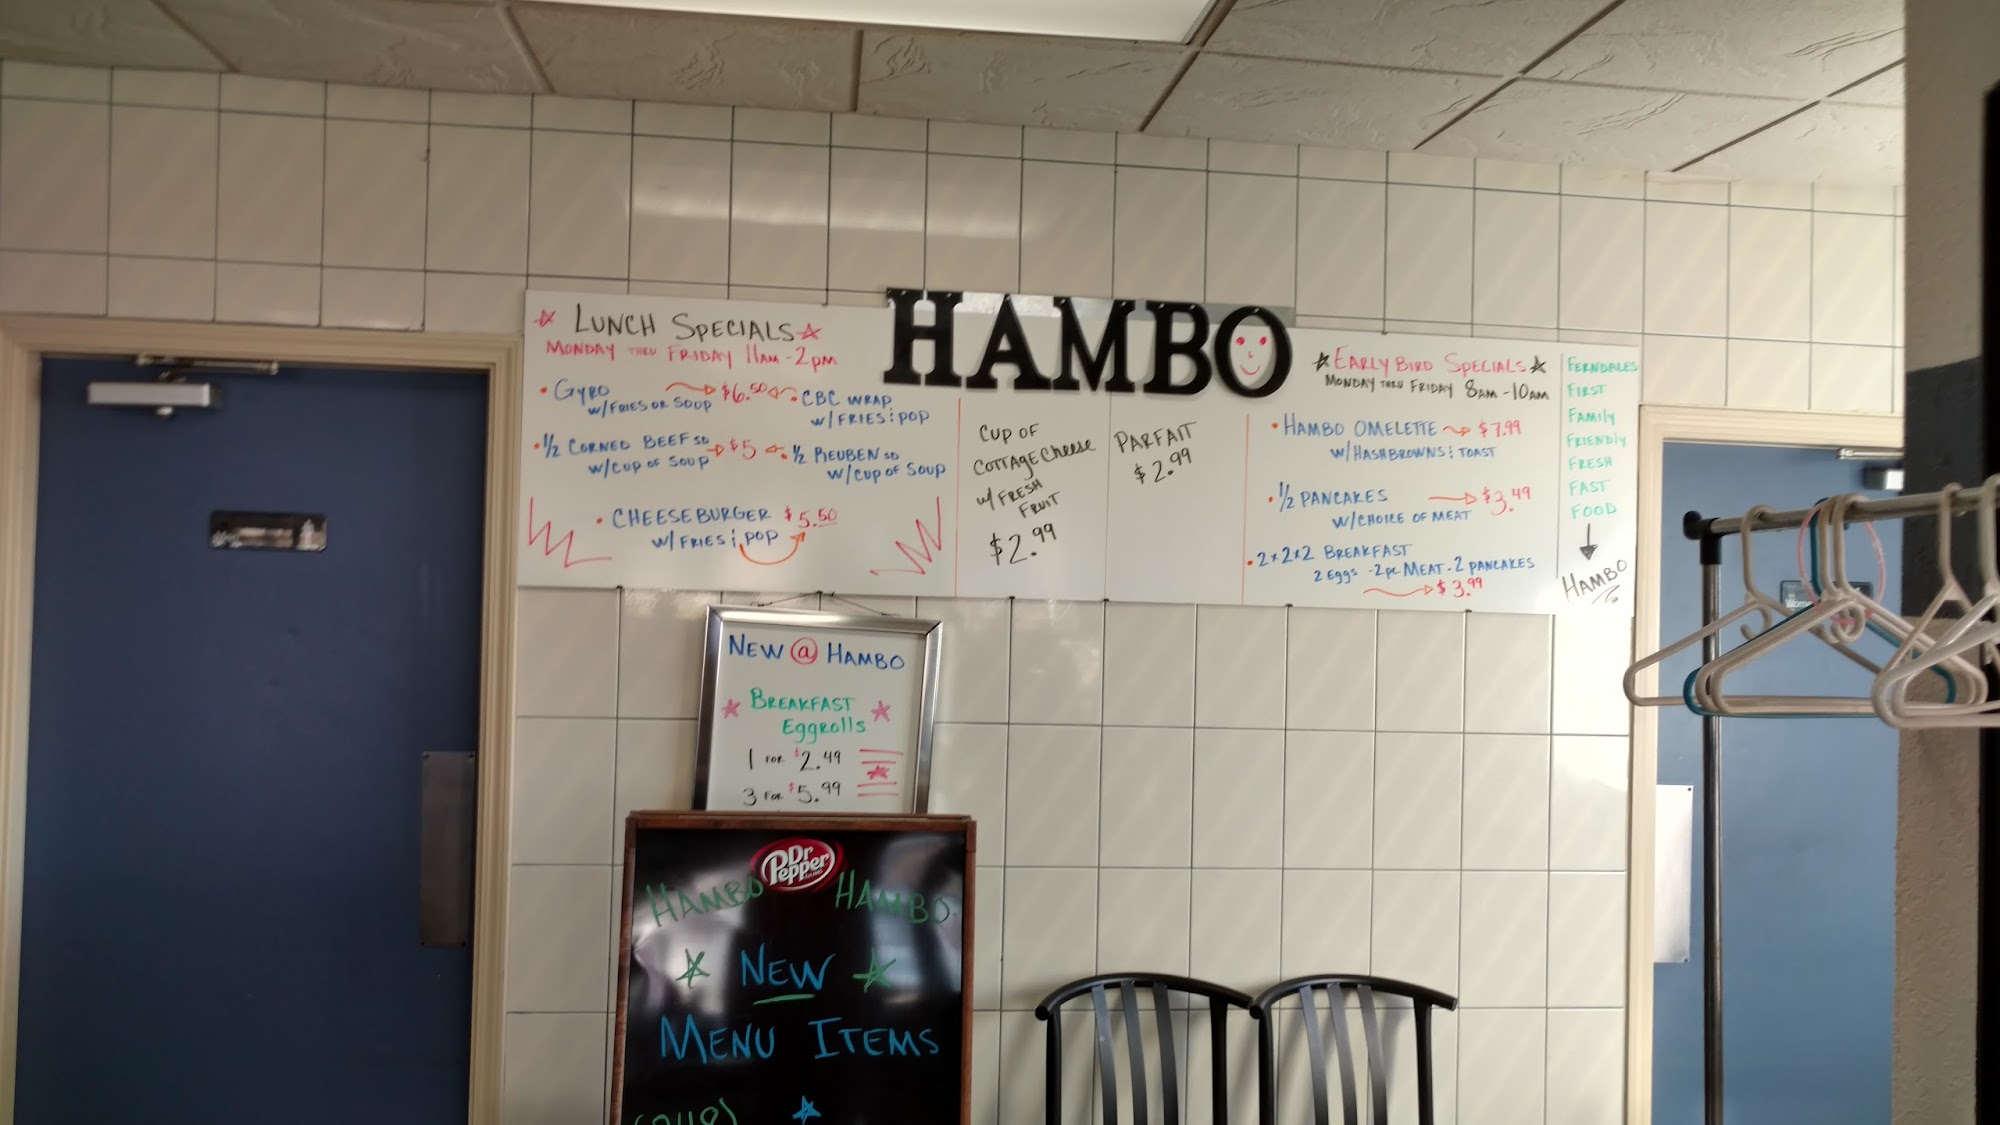 HAMBO
LUNCH SPECIALS
MONDAY THRU FRIDAY 11AM-2PM
• GYRO
w/FRIES OR SOUP
$6.50
• CBC WRAP
w/ FRIES & POP
• 1/2 CORNED BEEF SD
w/CUP OF SOUP
$5
• 1/2 REUBEN SD
w/CUP OF SOUP
• CHEESEBURGER $5.50
w/FRIES & POP
CUP OF
COTTAGE CHEESE
w/ FRESH
FRUIT
$2.99
PARFAIT
$2.99
EARLY BIRD SPECIALS
MONDAY THRU FRIDAY 8AM-10AM
• HAMBO OMELETTE $7.99
w/HASHBROWNS & TOAST
• 1/2 PANCAKES $3.49
w/CHOICE OF MEAT
• 2x2x2 BREAKFAST
2 EGGS - 2pc MEAT - 2 PANCAKES
$3.99
FERNDALES
FIRST
FAMILY
FRIENDLY
FRESH
FAST
FOOD
HAMBO
NEW @ HAMBO
BREAKFAST
EGGROLLS
1 FOR $2.49
3 FOR $5.99
Dr Pepper
HAMBO HAMBO
NEW
MENU ITEMS